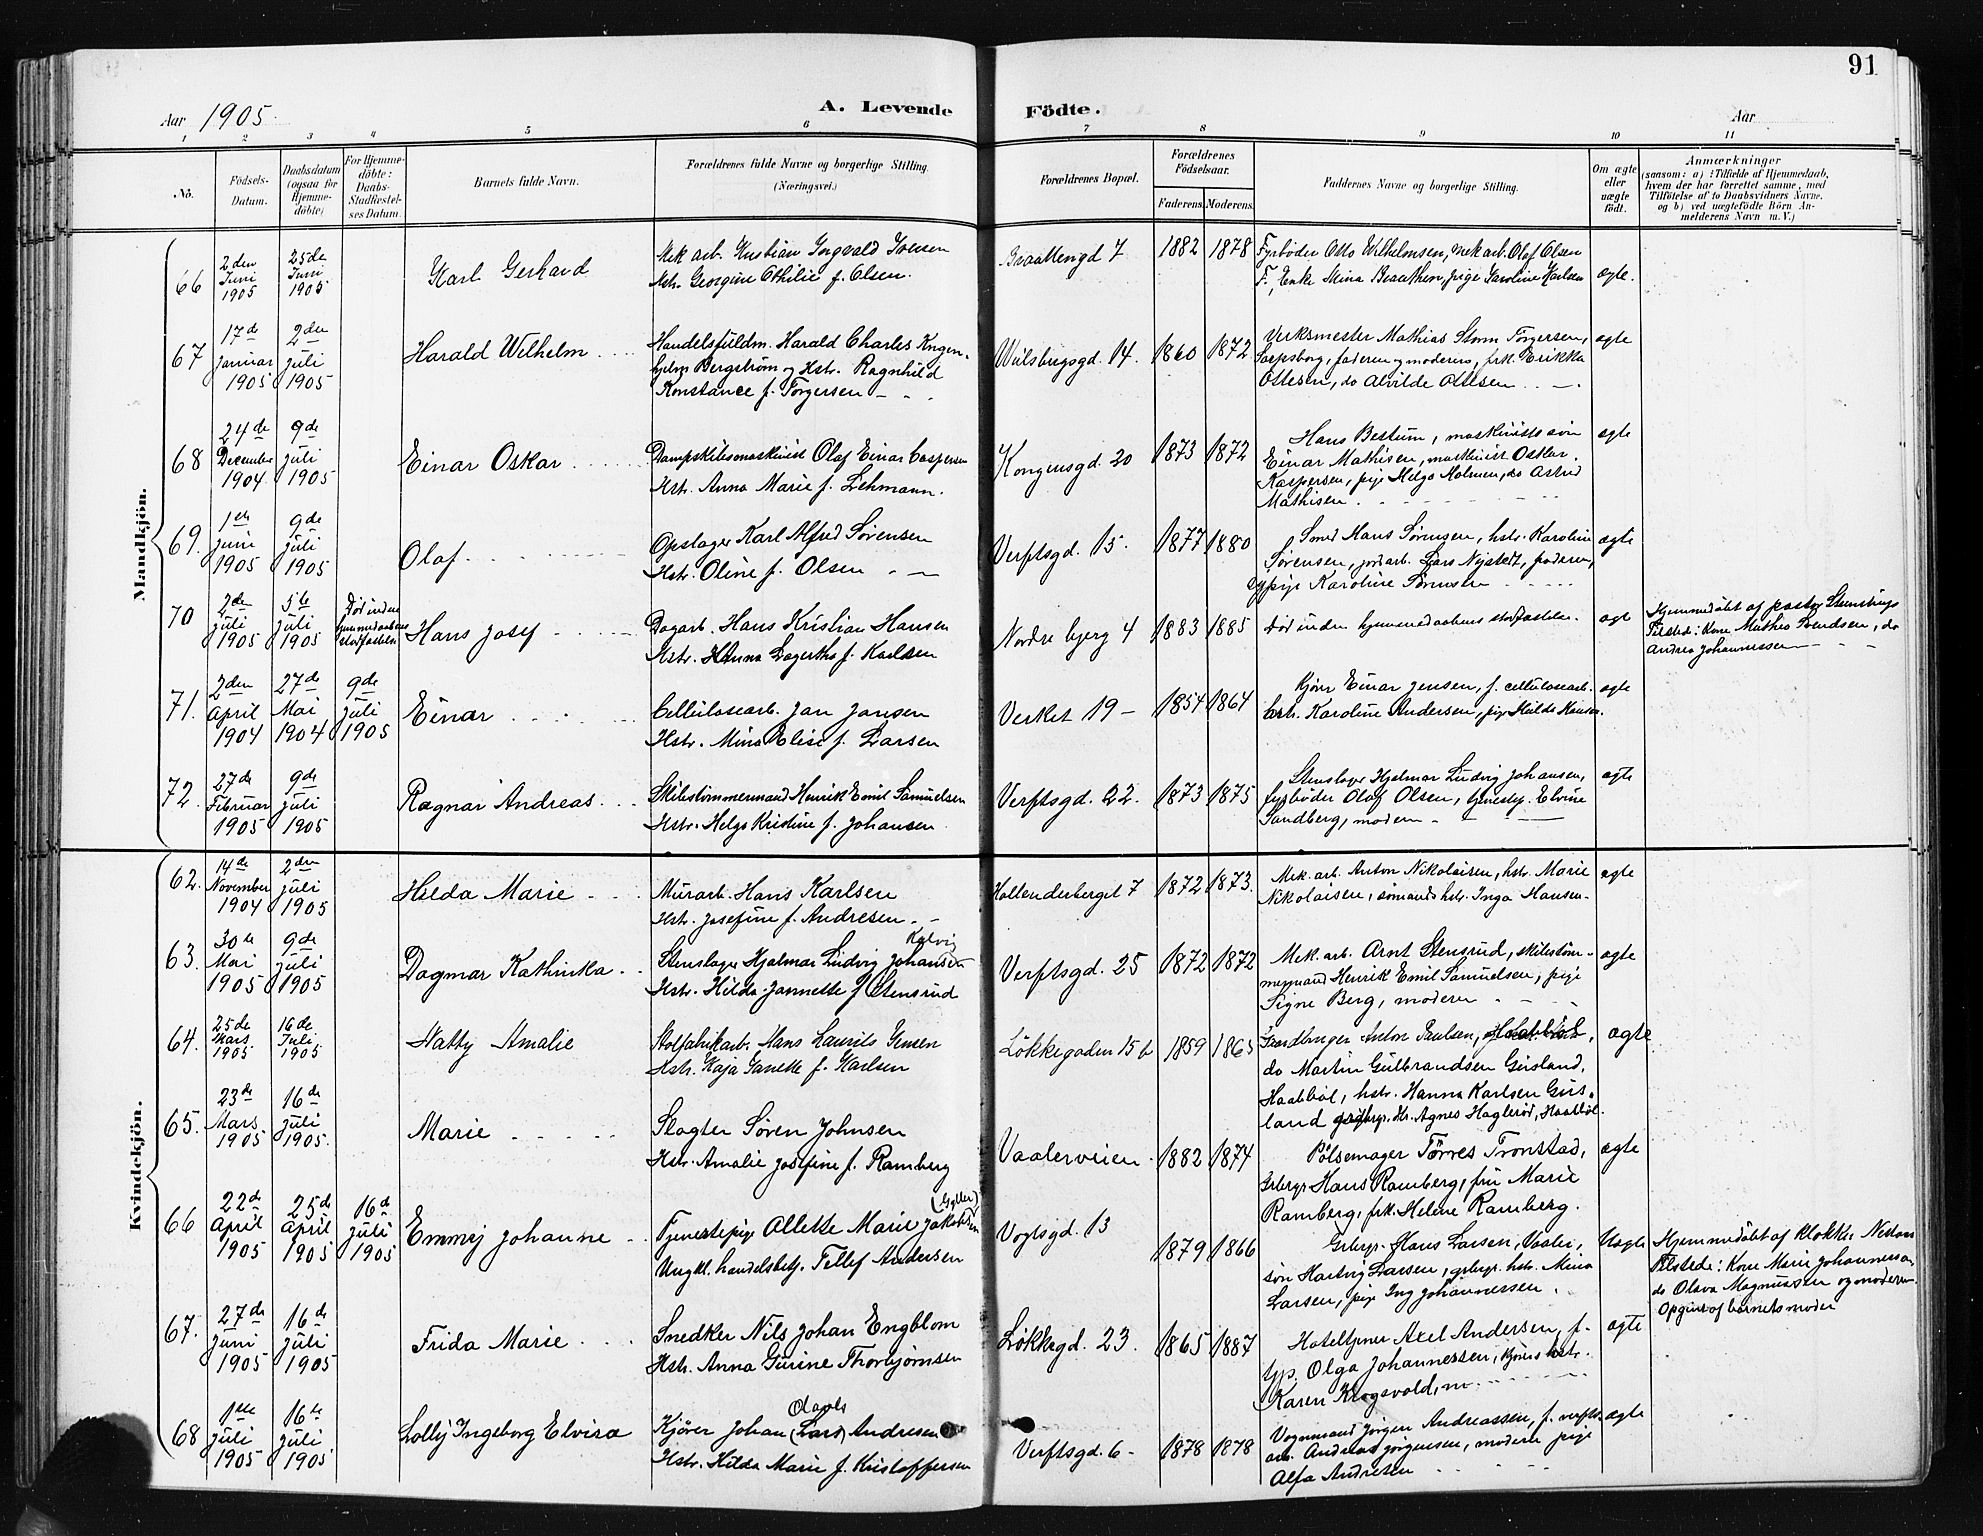 91
Aar 1905. A. Levende Födte. Aar
1 2 3 4 5 6 7 8 9 10 11
No. Födsels-Datum. Daabsdatum (ogsaa for Hjemme-döbte) For Hjemme-döbte: Daabs-Stadfæstel-ses Datum. Barnets fulde Navn. Forældrenes fulde Navne og borgerlige Stilling. (Næringsvei.) Forældrenes Bopæl. Forældrenes Födselsaar. Faderens. Moderens. Faddernes Navne og borgerlige Stilling. Om ægte eller uægte födt. Anmærkninger
(saasom: a) i Tilfælde af Hjemmedaab,
hvem der har forrettet samme, med
Tilföielse af to Daabsvidners Navne,
og b) ved uægtefödte Börn An-
melderens Navn m. V.)
Mandkjön.
66 2den Juni 1905 25de Juni 1905 Karl Gerhard Mek arb. Kristian Ingvald Iversen
Hstr. Georgine Othilie f. Olsen.
Braattengd 7 1882 1878 Fyrbøder Otto Wilhelmsen, mek arb. Olaf Olsen
F., Enke Mina Braathen, pige Karoline Karlsen ægte.
67 17de Januar 1905 2den Juli 1905 Harald Wilhelm Handelsfuldm. Harald Charles
Bergstrøm og Hstr. Ragnhild
Konstance f. Torgersen
Wulsbergsgd. 14. 1860 1872 Verksmester Mathias Storm Torgersen, ægte
Sarpsborg, faderen og moderen, frk. Erikka
Ottesen, do Alvilde Ottesen
68 24de December 1904. 9de Juli 1905 Einar Oskar Dampskibsmaskinist Olaf Einar Caspersen
Hstr. Anna Marie f. Lehmann.
Kongensgd. 20 1873 1872 Hans Bestum, maskinists søn ægte
Einar Mathisen, maskinist Oskar
Kaspersen, pige Helga Holmen, do Astrid
Mathisen
69. 1ste Juni 1905 9de Juli 1905 Olaf Opslager Karl Alfred Sørensen
Hstr. Oline f. Olsen
Verftsgd. 15. 1877 1880 Smed Hans Sørensen, hstr. Karoline ægte
Sørensen, jordarb. Lars Nystedt, faderen,
pige Karoline Sørensen
70 2den Juli 1905 5te Juli 1905 Død inden hjemmedaabens stadfæstelse Hans Josef Dagarb. Hans Kristian Hansen
Hstr. Hanna Lagertha f. Karlsen
Nordre bjerg 4 1883 1885 Død inden hjemmedaabens stadfæstelse. ægte Hjemmedøbt af pastor Stensbugs
Tilstede: Kone Mathea Bendsen, do
Andrea Johannessen
71. 2den April 1904 27de Mai 1904 9de Juli 1905 Einar Cellulosearb. Jan Jansen
Hstr. Mina Elise f. Larsen
Verket 19 1854 1864 Kjører Einar Jensen, f. cellulosearb. ægte
hstr. Karoline Andersen, pige Hulda Hansen.
72. 27de Februar 1905 9de Juli 1905 Ragnar Andreas Skibstømmermand Henrik Emil Samuelsen
Hstr. Helga Kristine f. Johansen
Verftsgd. 22. 1873 1875 Stenslager Hjalmar Ludvig Johansen, ægte
fyrbøder Olaf Olsen, tjenestp. Elvine
Sandberg, moderen
Kvindekjön.
62. 14de November 1904 2den Juli 1905 Hilda Marie Murarb. Hans Karlsen
Hstr. Josefine f. Andresen
Hollenderberget 7 1872 1873. Mek. arb. Anton Nikolaisen, hstr. Marie ægte
Nikolaisen, sømands hstr. Inga Hansen
63. 30te Mai 1905 9de Juli 1905 Dagmar Kathinka Kalvig
Stenslager Hjalmar Ludvig Johansen
Hstr. Hilda Jannette f Stensrud
Verftsgd. 25 1872 1872 Mek. arb. Arnt Stensrud, skibstøm- ægte
mermand Henrik Emil Samuelsen, pige
Signe Berg, moderen
64. 25de Mars 1905 16de Juli 1905 Natty Amalie Stolfabrikarb. Hans Laurits Jensen
Hstr. Kaja Janette f. Karlsen
Løkkegaden 15 b 1859 1865 Anton Paulsen, Haabbøl, ægte
do Martin Gulbrandsen Gusland,
Haabbøl, hstr. Hanna Karlsen Gus-
land Agnes Haglerød, Haabbøl.
65. 23de Mars 1905 16de Juli 1905. Marie Slagter Søren Johnsen
Hstr. Amalie Josefine f. Ramberg
Vaalerveien 1882 1874 Pølsemager Tørres Tronstad, ægte
Grbrgr Hans Ramberg, fru Marie
Ramberg, frk. Helene Ramberg.
66 22de April 1905 25de April 1905 16de Juli 1905 Emmy Johanne (Gyller)
Tjenestepige Allette Marie Jakobsen
Ungkl. handelsbetj. Tellef Andersen
Vogtsgd. 13 1879 1866 Grbrgr. Hans Larsen, Vaaler, Uægte
søn Hartvig Larsen, grbrgr. hstr. Mina
Larsen, pige Ing Johannessen.
Hjemmedøbt af klokker Nielsen
Tilstede: Kone Marie Johannessen
do Olava Magnussen og moderen.
Opgivet af barnets moder
67. 27de Juni 1905 16de Juli 1905 Frida Marie Snedker Nils Johan Engblom
Hstr. Anna Gurine Thorbjørnsen
Løkkegd. 23. 1865 1887 Hoteltjener Axel Andersen, f. ægte
Gp. Olga Johannessen, Kjørers hstr.
Karen Krogsvold, m.
68 1ste Juli 1905 16de Juli 1905 Lolly Ingeborg Elvira Olaves
Kjører Johan (Lars) Andresen
Hstr. Hilda Marie f. Kristoffersen
Verftsgd. 6 1878 1878 Vognmand Jørgen Andreassen, f. verfts- ægte
arb. Andreas Jørgensen, moderen pige
Alfa Andresen